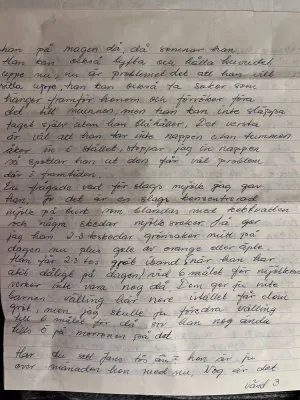 han på magen då, då somnar han.
Han kan också lyfta och hålla huvudet
uppe nu, nu är problemet det att han vill
sitta uppe, han kan också ta saker som
hänger framför honom och försöker föra
det till munnen, men han kan inte släppa
taget själv utan blir hållen. Det
är väl att han tar inte nappen utan tummen
åker in i stället, stoppar jag in nappen
så spottar han ut den får väl problem
där i framtiden.
Du frågade vad för slags mjölk jag gav
han, jo det är en slags
mjölk på burk som blandas med kokt vatten
och några skedar mjölk Så ger
jag han 2-3 teskedar grönsaker mitt på
dagen nu plus gele av orange eller äple
Han får 2-3 tes gröt ibland när han har
ätit dåligt på dagen vid 6 målet för mjölken
verkar inte vara nog då. Dom ger ju inte
barnen välling här nere istället får dom
gröt, men jag skulle ju föredra välling
till 6 målet för då sov han nog ända
till 6 på morronen på det.
Har du sett Jans han är ju
över månaden hon med nu. Nog är det
vänd 3